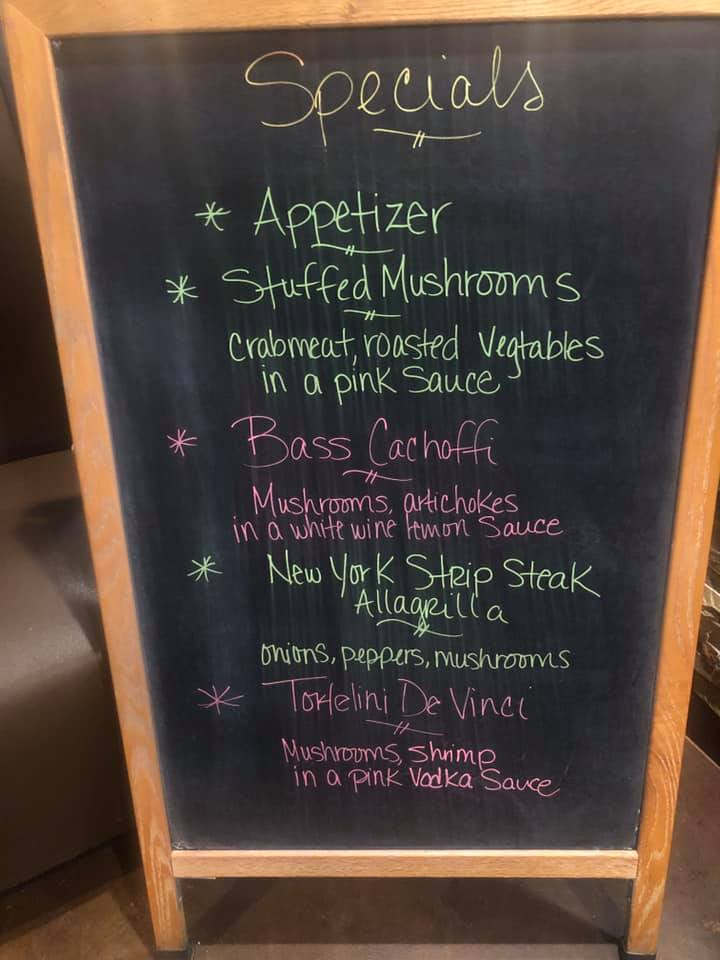 Specials
* Appetizer
* Stuffed Mushrooms
Crabmeat, roasted Vegtables
in a pink Sauce
* Bass Cachoffi
Mushrooms, artichokes
in a white wine lemon Sauce
* New York Strip Steak
Allagrilla
onions, peppers, mushrooms
* Tortelini De Vinci
Mushrooms, shrimp
in a pink Vodka Sauce